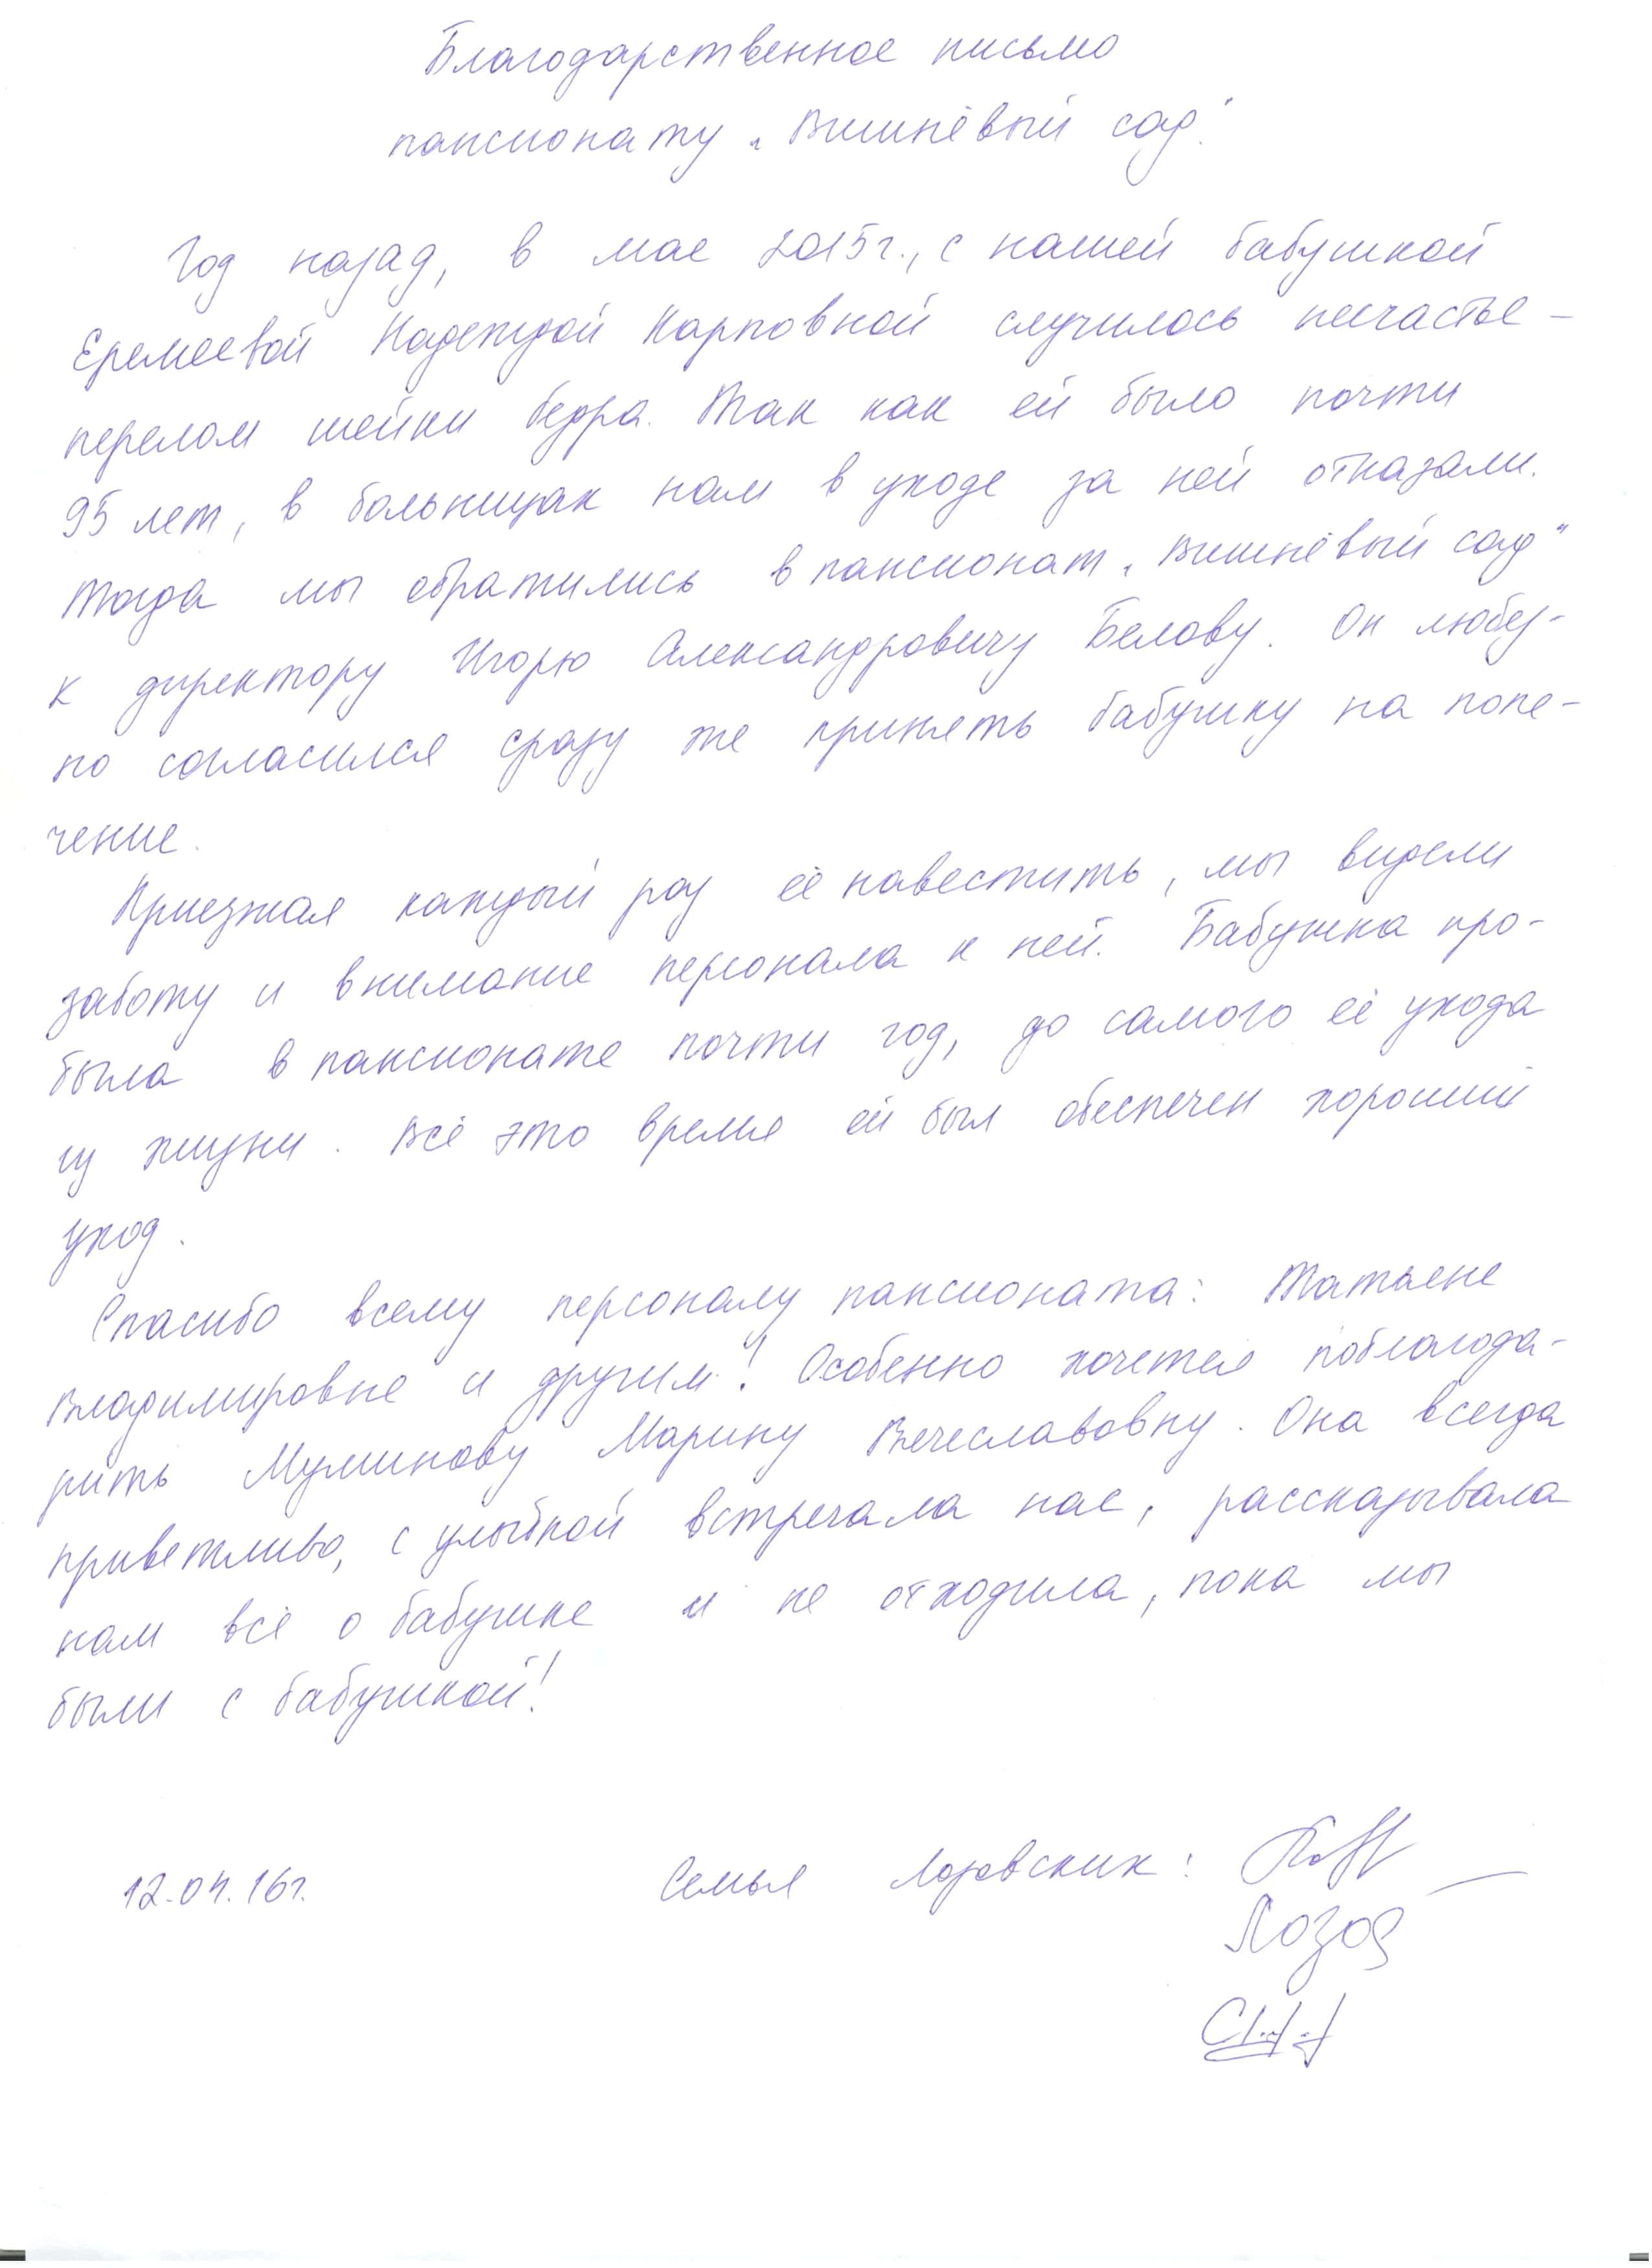 Благодарственное письмо
пансионату „Вишнёвый сад".
Год назад, в мае 2015г., с нашей бабушкой
Еремеевой Надеждой Карповной случилось несчастье –
перелом шейки бедра. Так как ей было почти
95 лет, в больницах нам в уходе за ней отказали.
Тогда мы обратились в пансионат „Вишнёвый сад"
к директору Игорю Александровичу Белову. Он любез-
но согласился сразу же принять бабушку на попе-
чение.
Приезжая каждый раз её навестить, мы видели
заботу и внимание персонала к ней. Бабушка про-
была в пансионате почти год, до самого её ухода
из жизни. Всё это время ей был обеспечен хороший
уход.
Спасибо всему персоналу пансионата: Татьяне
Владимировне и другим! Особенно хочется поблагода-
рить Муминову Марину Вячеславовну. Она всегда
приветливо, с улыбкой встречала нас, рассказывала
нам всё о бабушке и не отходила, пока мы
были с бабушкой!
12.04.16г. Семья Лозовских:
Лозов